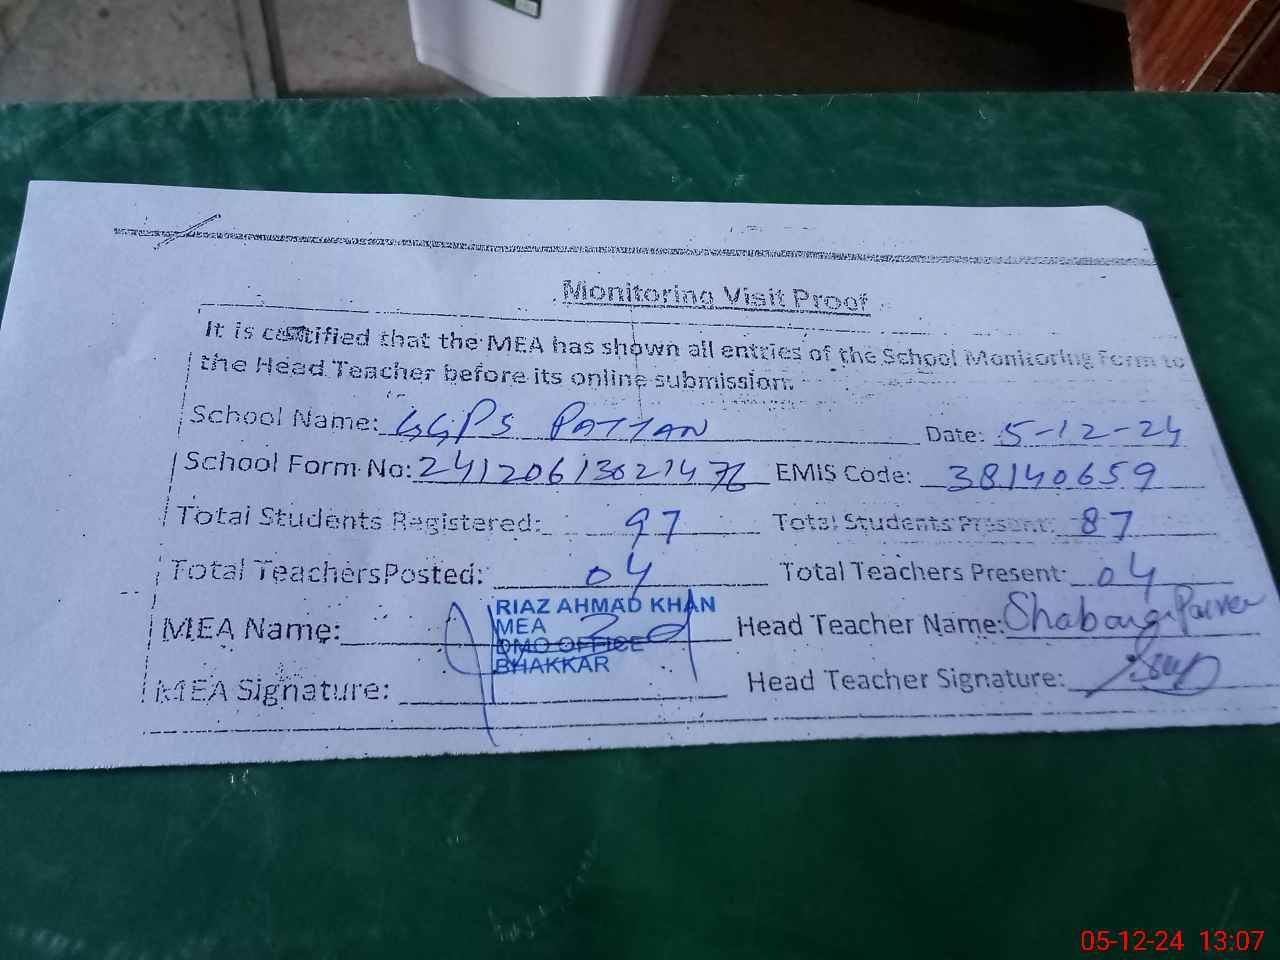 Monitoring Visit Proof
It is certified that the MEA has shown all entries of the School Monitoring Form to
the Head Teacher before its online submission.
School Name: GGPS PATTAN Date: 5-12-24
School Form No: 24120613021476 EMIS Code: 38140659
Total Students Registered: 97 Total Students Present: 87
Total Teachers Posted: 04 Total Teachers Present: 04
RIAZ AHMAD KHAN
MEA Name: MEA Head Teacher Name:
DMO OFFICE
BHAKKAR
MEA Signature: Head Teacher Signature:
05-12-24 13:07